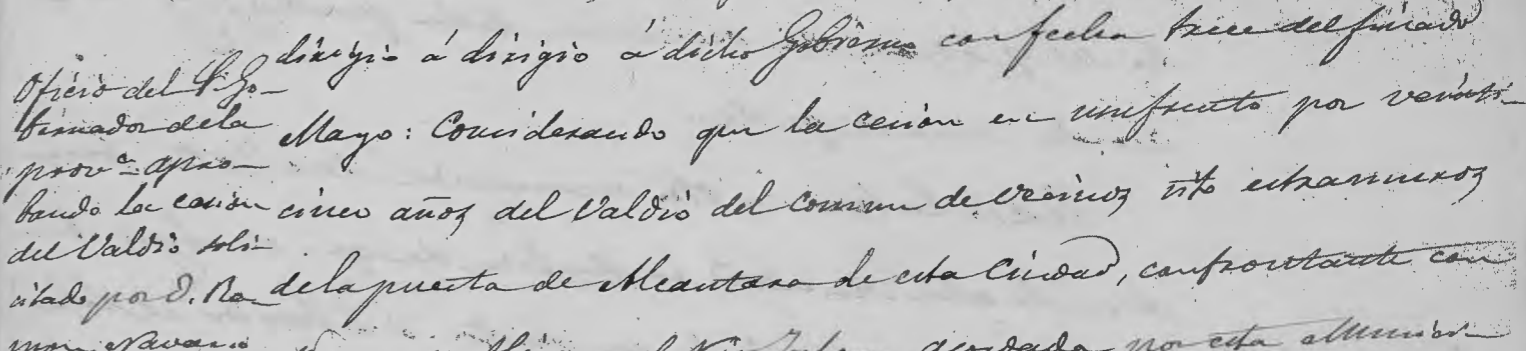 Oficio del Sr. Go-
bernador de la
provª apro-
bando la cesion
del Valdio soli-
citado por D. Ra-
mon Navarro
dirigio á dirigio á dicho Gobierno con fecha trece del finado
Mayo: Considerando que la cesion en usufructo por veinti-
cinco años del Valdio del comun de vecinos sito estramuros
de la puerta de Alcantara de esta Ciudad, confrontante con
acordada por esta Municí